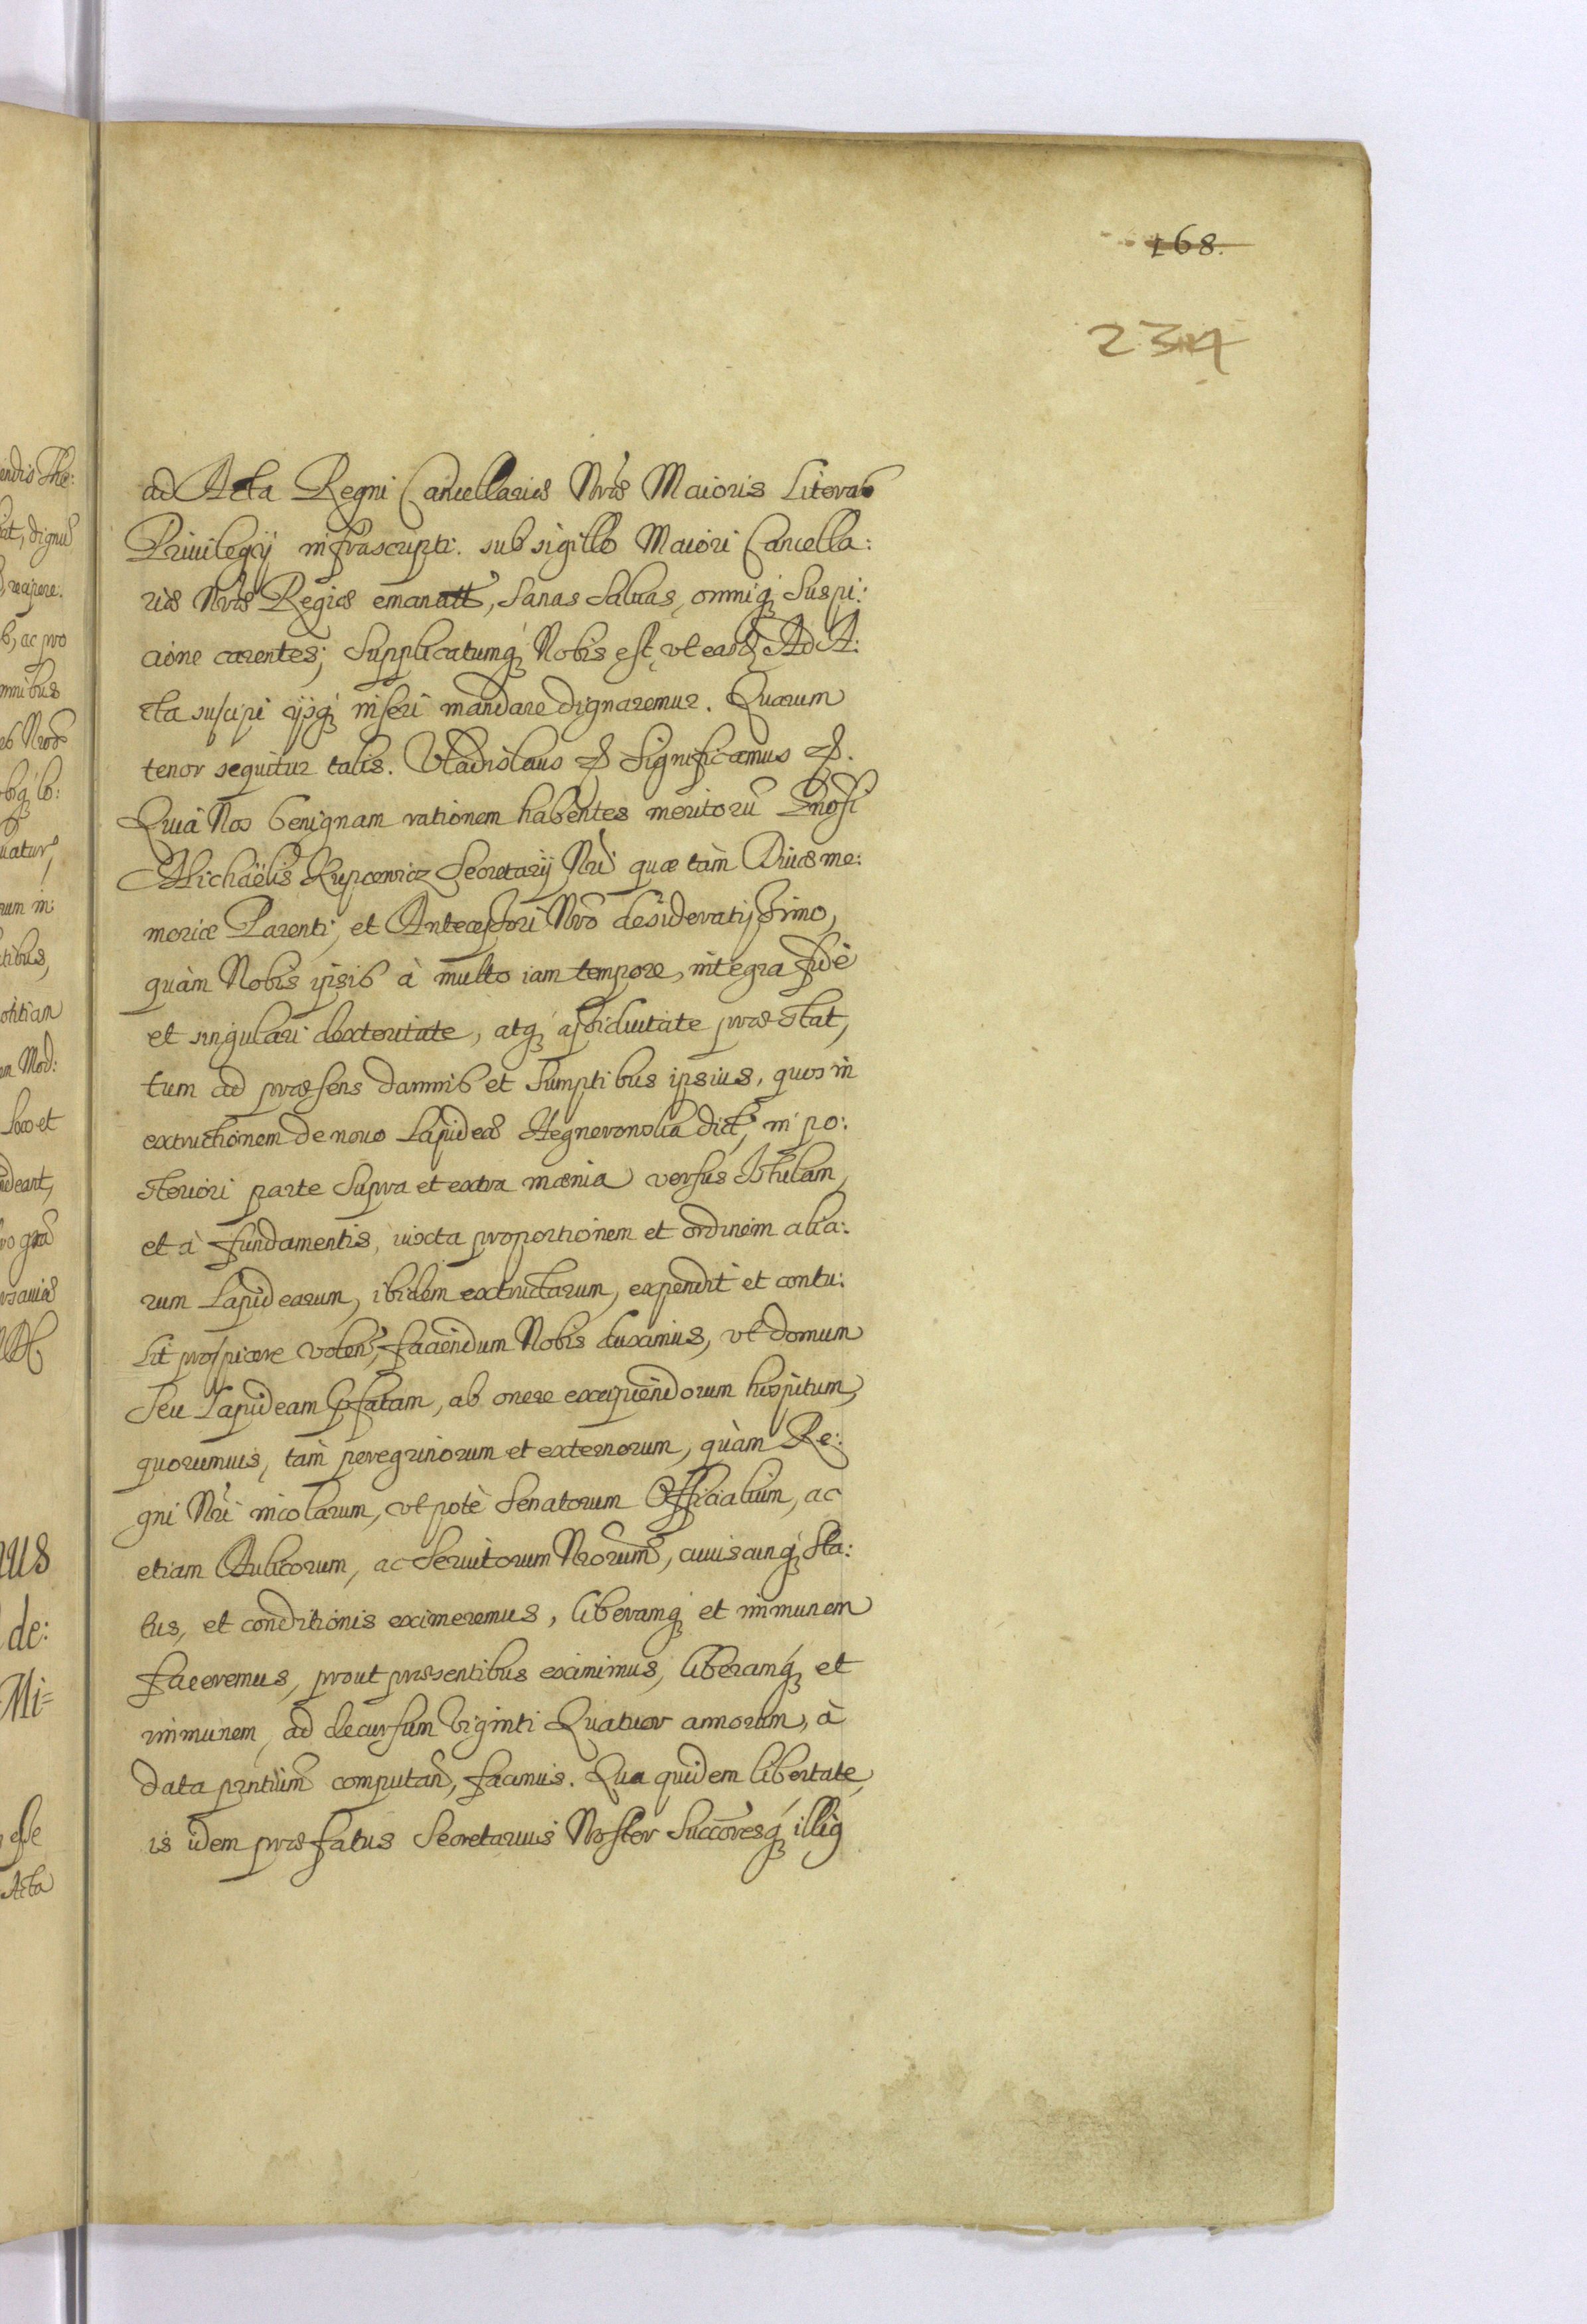 168.
234
ad Acta Regni Cancellariæ Nræ Maioris Literas
Priuilegij infrascripti. sub sigillo Maiori Cancella:
riæ Nræ Regiæ emanatt, Sanas Saluas, omniq Suspi:
cione carentes; Supplicatumq Nobis est, vt easd Ad A:
cta suscipi ijsq inseri mandare dignaremur. Quarum
tenor sequitur talis. Vladislaus &. Significamus &.
Quia Nos benignam rationem habentes meritorū Gnosi
Michaëlis Kupcewicz Secretarij Nri quæ tàm Diuæ me:
moriæ Parenti, et Antecessori Nro desideratissimo,
quàm Nobis ipsis à multo iam tempore, integra fidè
et singulari dexteritate, atq assiduitate præstat,
tum ad præsens damnis et Sumptibus ipsius, quos in
extructionem de nouo Lapideæ dict, in po:
steriori parte Supra et extra mænia versus Istulam,
et à fundamentis, iuxta proportionem et ordinem alia:
rum Lapidearum, ibidem extructarum, expendit et contu:
lit prospicere volen, faciendum Nobis duximus, vt domum
Seu Lapideam pfatam, ab onere excipiendorum hospitum,
quorumuis, tàm peregrinorum et externorum, quàm Re:
gni Nri incolarum, vt potè Senatorum Officialium, ac
etiam Aulicorum, ac Seruitorum Nrorum, cuiuscunq Sta:
tus, et conditionis eximeremus, liberamq et immunem
faceremus, prout præsentibus eximimus, liberamq et
immunem, ad decursum Viginti Quatuor annorum, à
data prntium computan, facimus. Qua quidem libertate,
is idem præfatus Secretarius Noster Succoresq illiq